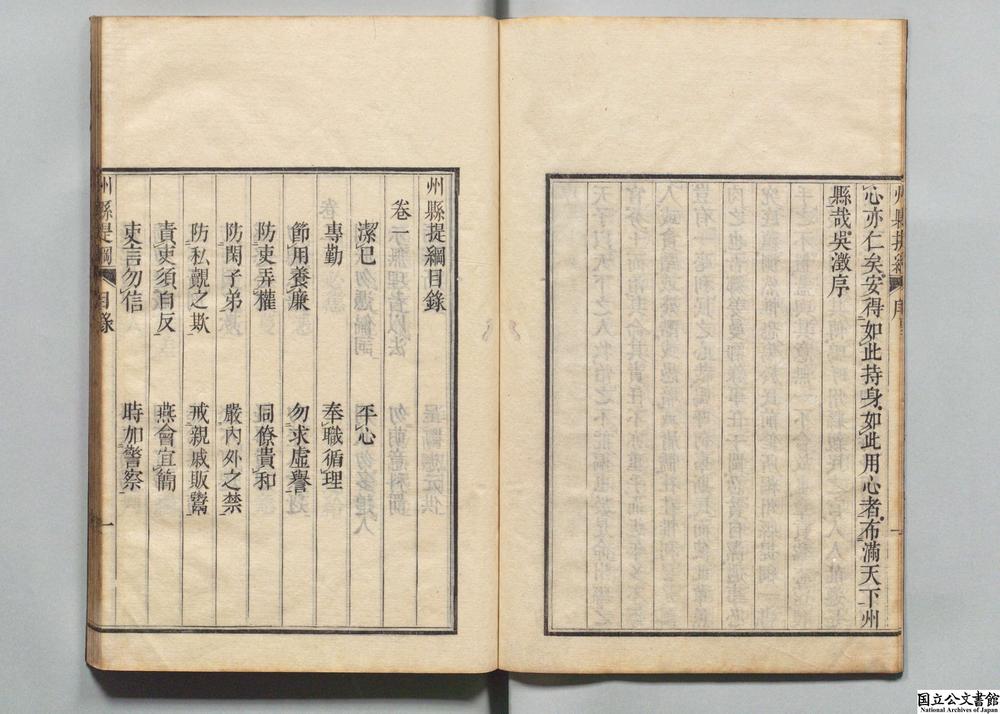 心亦仁矣安得如此持身如此用心者布滿天下州
縣哉吳澂序
州縣提綱目錄
卷一
潔己
平心
專勤
奉職循理
節用養廉
勿求虛譽
防吏弄權
同僚貴和
防閑子弟
嚴內外之禁
防私覿之欺
戒親戚販鬻
責吏須自反
燕會宜簡
吏言勿信
時加警察
州縣提綱
目錄
一
国立公文書館
National Archives of Japan